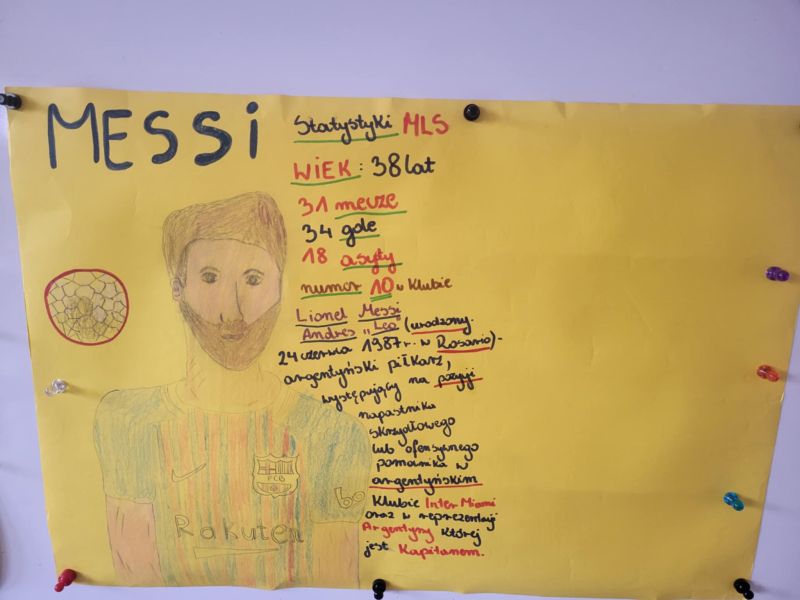 MESSI
Statystyki MLS
WIEK: 38 lat
31 mecze
34 gole
18 asyty
numor 10 w klubie
Lionel Messi
Andres "Leo" (urodzony
24 czerwca 1987r. w Rosario)-
argentyński piłkarz,
występujący na pozycji
napastnika
skrzydłowego
lub ofensywnego
pomocnika w
argentyńskim
klubie Inter Miami
oraz w reprezentacji
Argentyny której
jest Kapitanem.
FCB
Rakuten